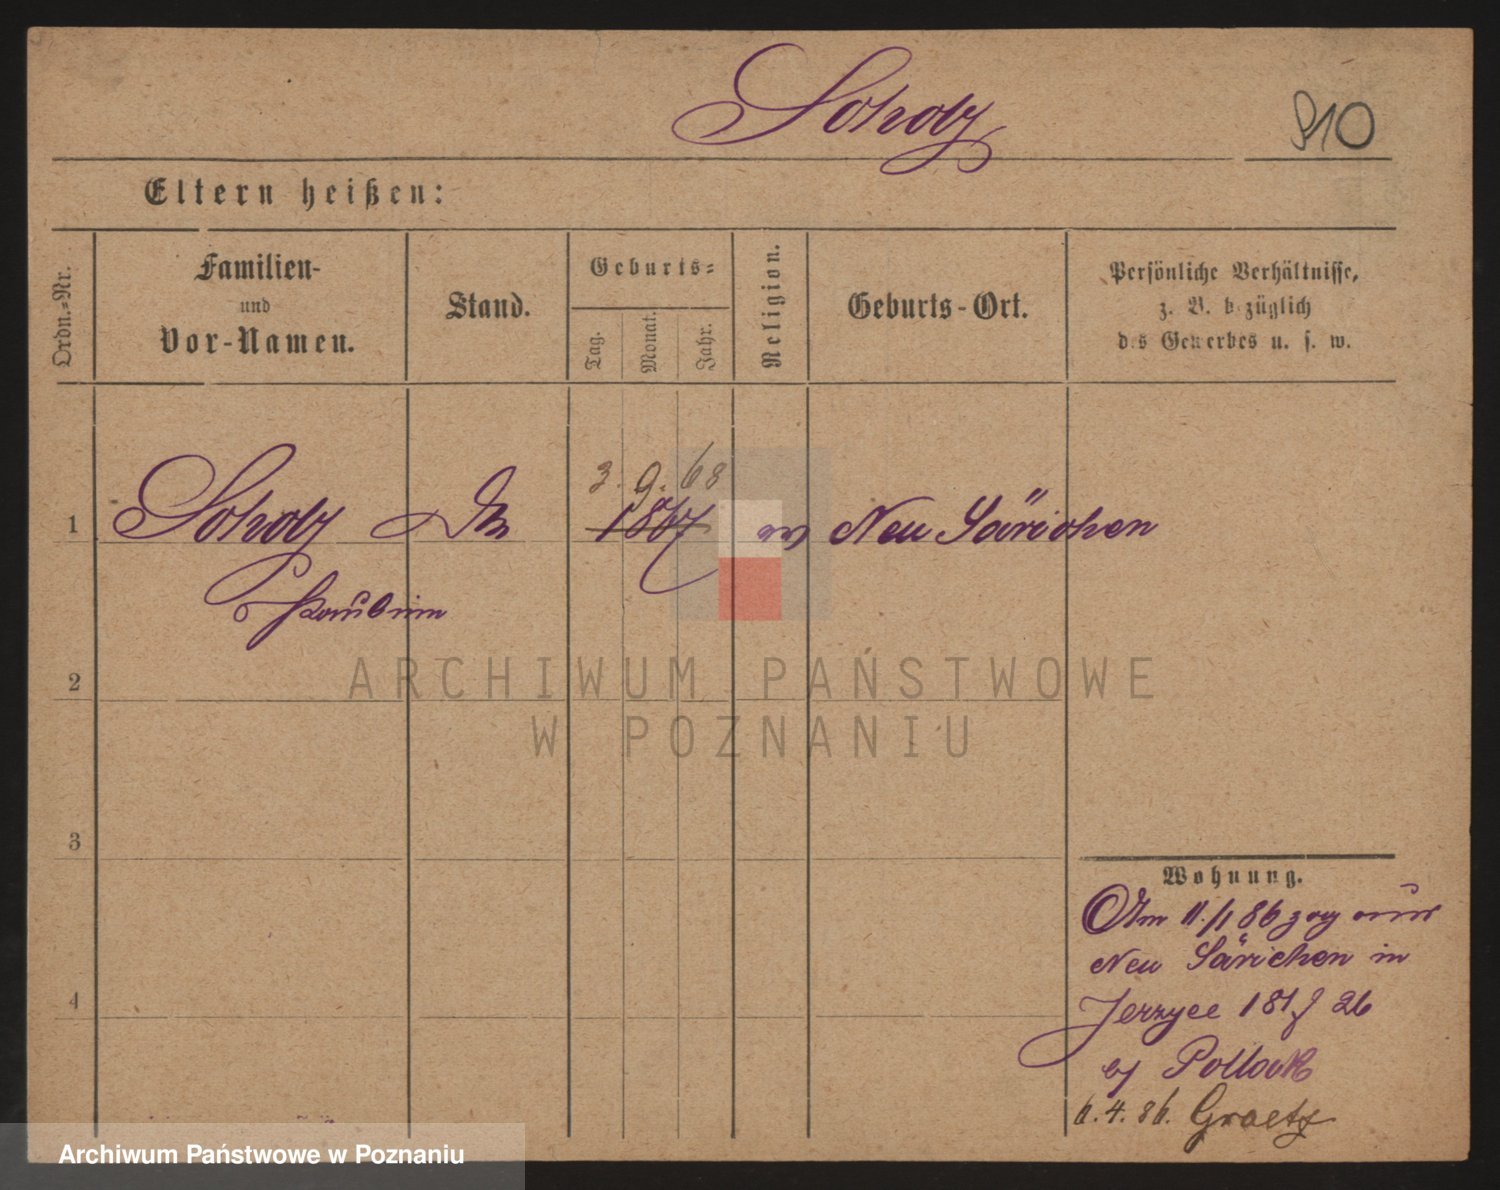 Scholz
910
Eltern heißen:
Ordn.-Nr.
Familien-
und
Vor-Namen.
Stand.
Geburts-
Tag.
Monat.
Jahr.
Religion.
Geburts-Ort.
Persönliche Verhältnisse,
z. B. bezüglich
des Gewerbes u. s. w.
3. 9. 68
1 Scholz 1867 Neu Särichen
2
3
4
Wohnung.
Am 11./1 86 zog aus
Neu Särichen in
Jerzyce 181 f 26
bj Pollack
6.4.86. Graetz
ARCHIWUM PAŃSTWOWE
W POZNANIU
Archiwum Państwowe w Poznaniu